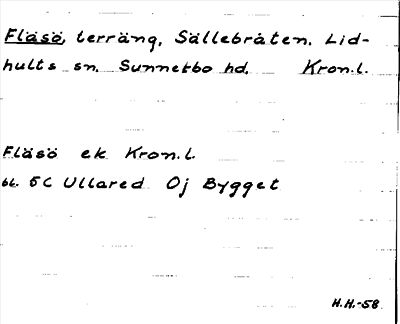 Fläsö, terräng, Sällebråten. Lid-
hults sn. Sunnerbo hd. Kron.l.
Fläsö ek Kron.l.
bl. 5C Ullared Oj Bygget
H.H.-58